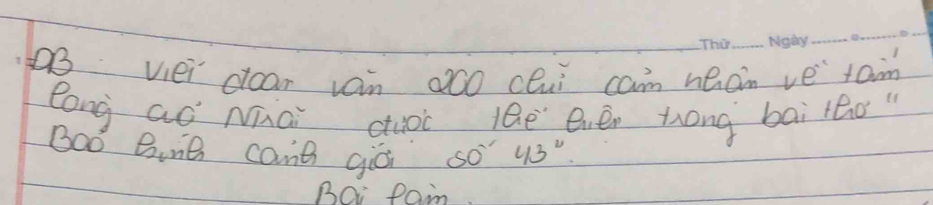 Thứ....... Ngày.......
ĐB Viết đoạn văn 200 chữ cảm nhận về tấm
lòng của Nguyễn Trãi được thể hiện trong bài thơ "
Bảo kính cảnh giới số 43".
Bài làm